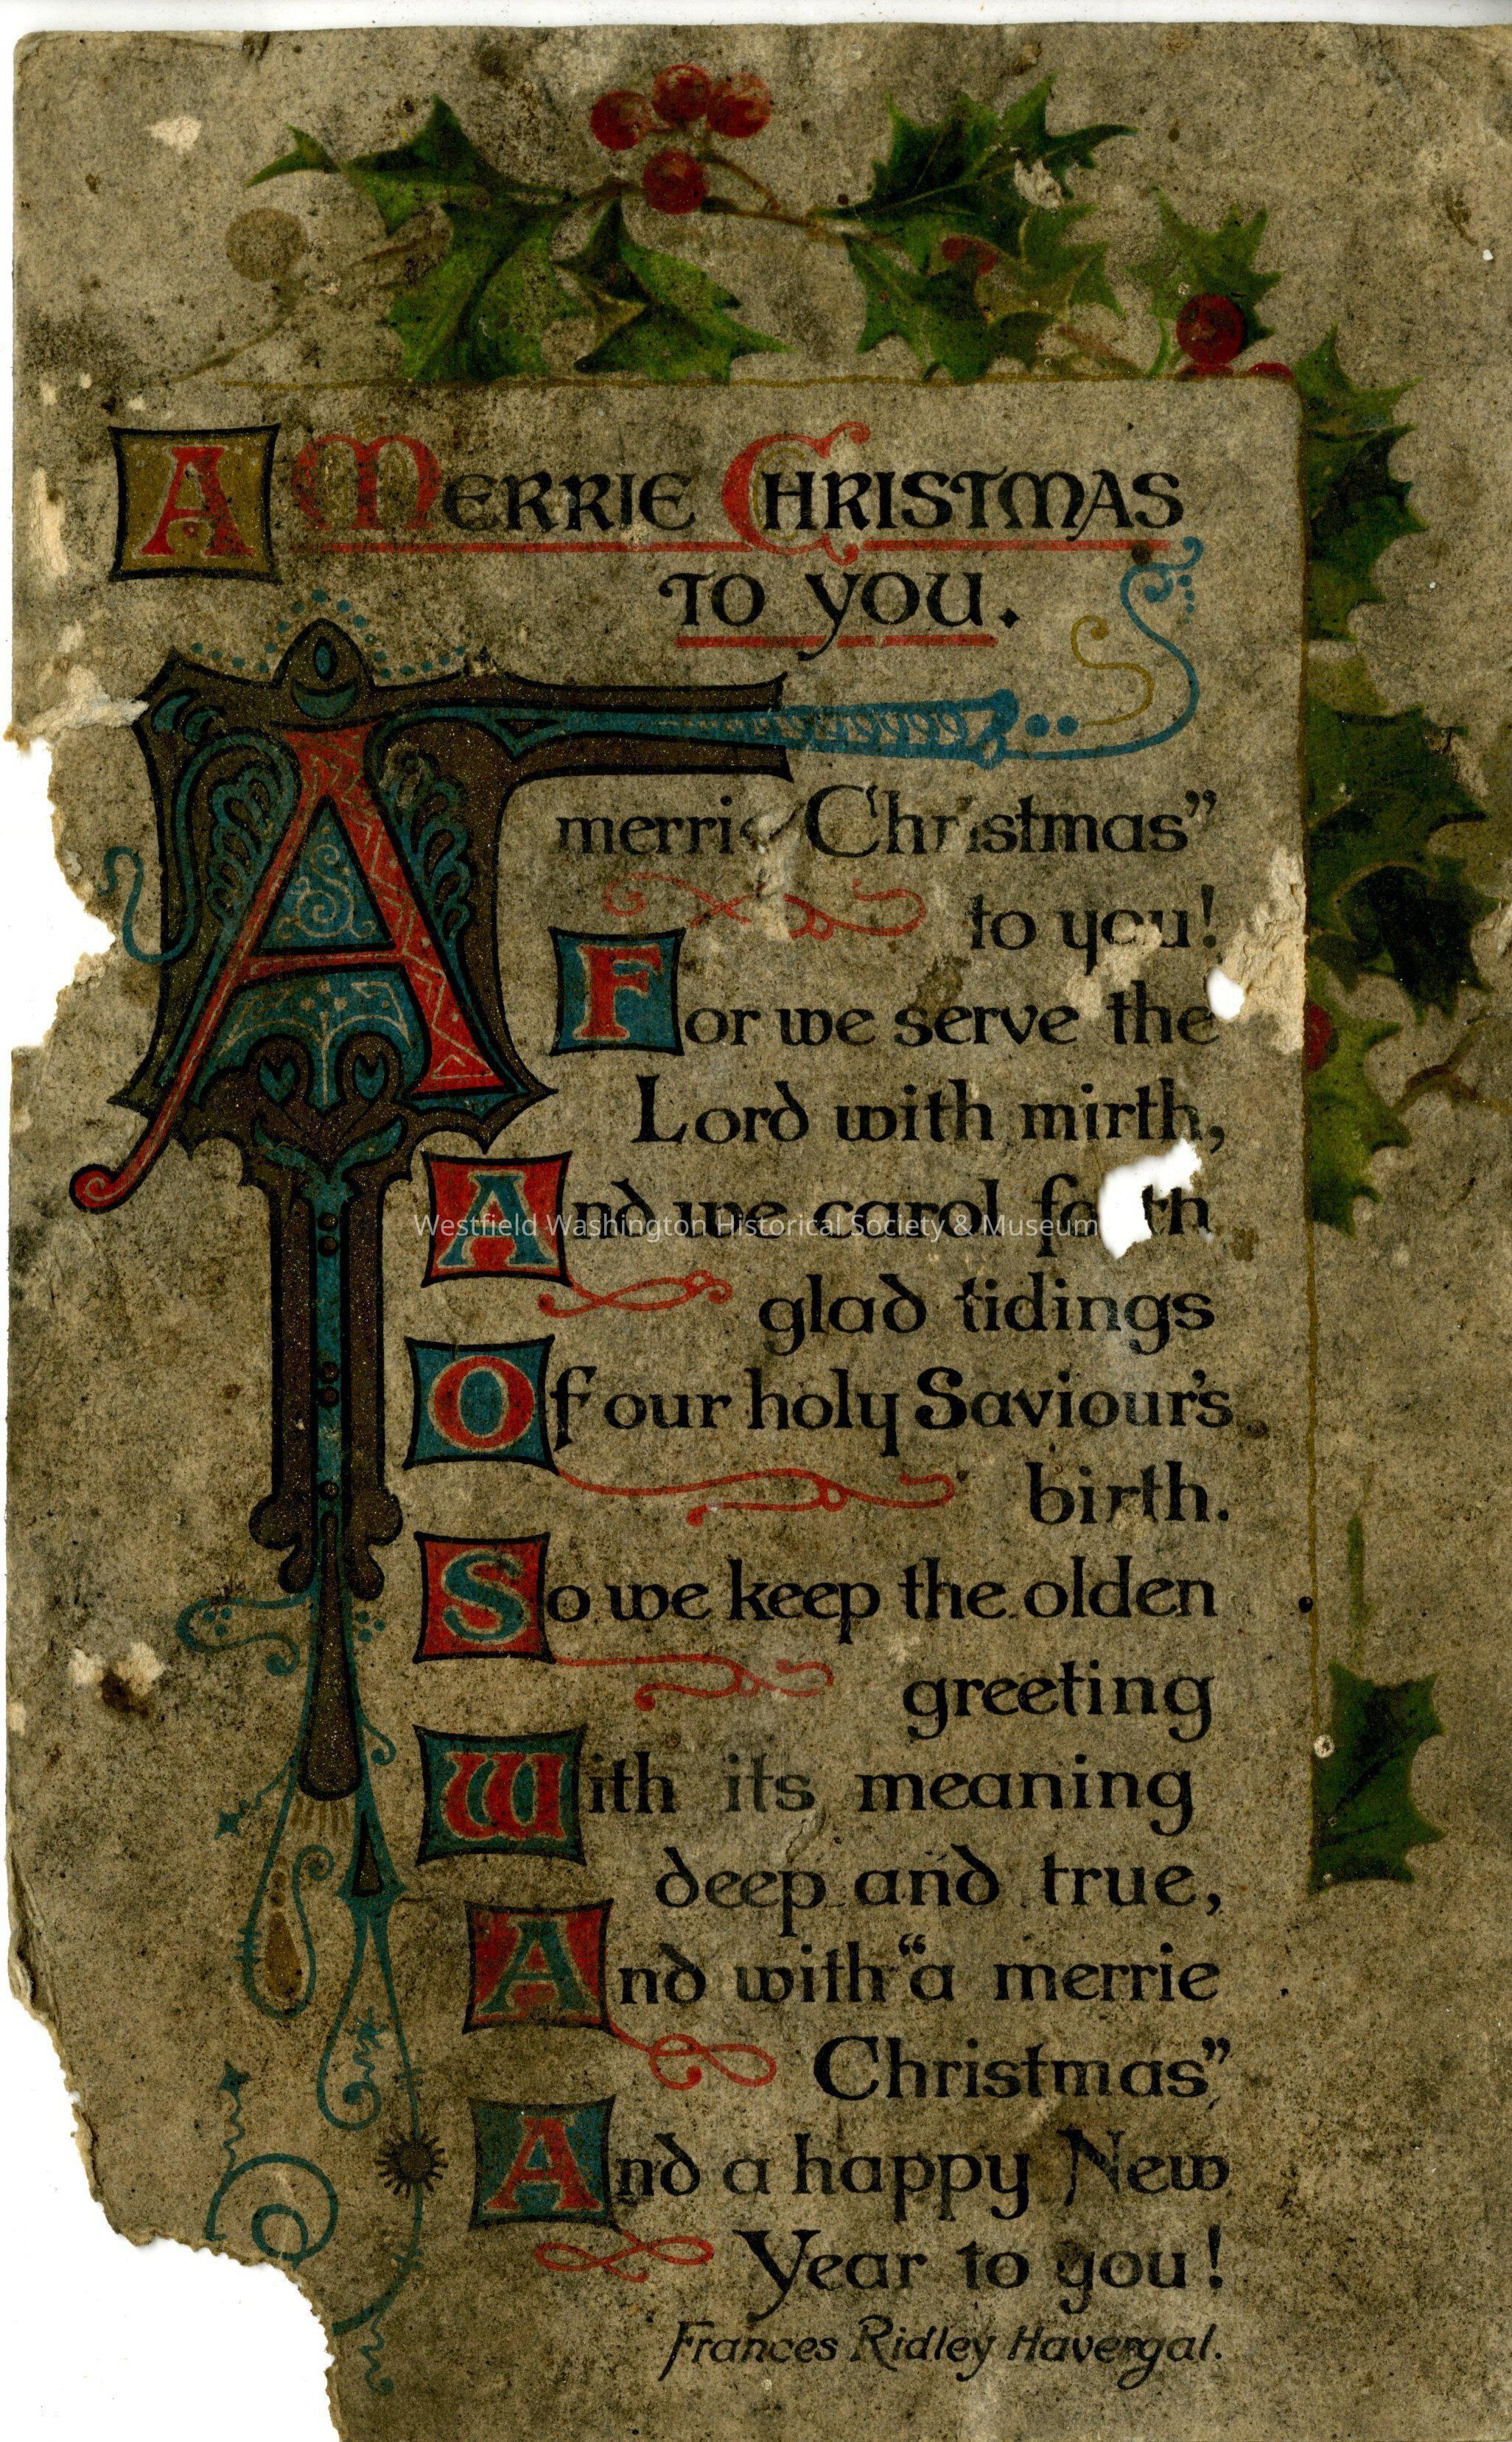 A MERRIE CHRISTMAS
TO YOU.
A merrie Christmas”
to you!
For we serve the
Lord with mirth,
And we carol forth
Westfield Washington Historical Society & Museum
glad tidings
Of our holy Saviour's
birth.
So we keep the olden
greeting
With its meaning
deep and true,
And with “a merrie
Christmas”
And a happy New
Year to you!
Frances Ridley Havergal.